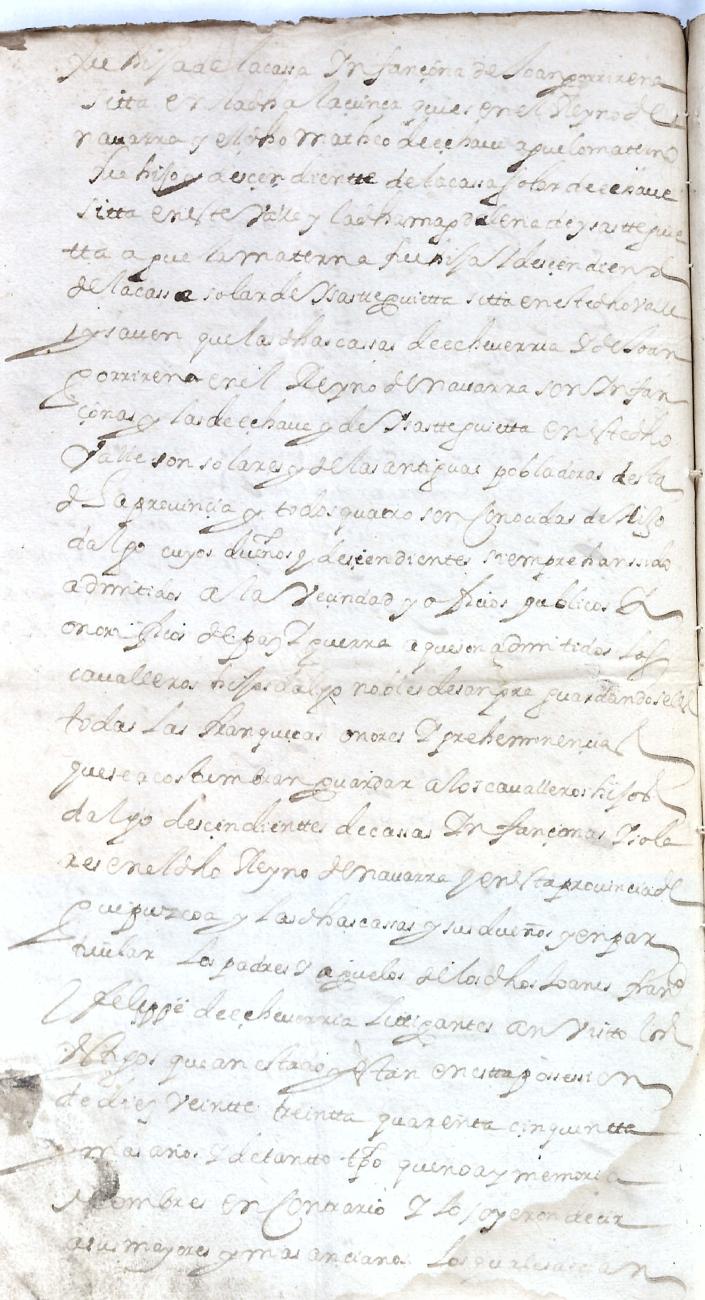 fue hija de la cassa Ynfançona de Joanporrirena
sitta en la dha la quinça ques en el Reyno de
navarra y el dho Matheo de echaue aguelo materno
fue hijo y descendiente de la cassa solar de echaue
sitta en este Valle y la dha magdalena de ysastegui
tta aguela materna fue hija y descendiente
de la cassa solar de Ysasteguietta sitta en este dho Valle
y sauen que las dhas cassas de echeverria y de Joan
porrirena en el Reyno de navarra son Ynfan
çonas y las de echaue y de Ysasteguietta en este dho
Valle son solares y de las antiguas pobladoras desta
dha provincia y todas quatro son Conocidas de Hijo
dalgo cuyos dueños y descendientes siempre han sido
admitidos a la Vecindad y oficios publicos y
onorificos de paz y guerra a que son admitidos los
cavalleros hijosdalgo nobles de sangre guardandoseles
todas las franqueças onores y prehemonencias
que se acostumbran guardar a los cavalleros hijos
dalgo descendienttes de cassas Ynfançonas y sola
res en el dho Reyno de navarra y en esta provincia de
Guipuzcoa y las dhas cassas y sus dueños y en par
ticular los padres y aguelos de los dhos Joanes franco
y felippe de echeverria littigantes an visto los
testigos que an estado y estan en esta posesion
de diez veintte treintta quarenta cinquentta
y mas años y de tantto tpo que no ay memoria
de ombres en Contrario y lo oyeron decir
a sus mayores y mas ancianos los quales